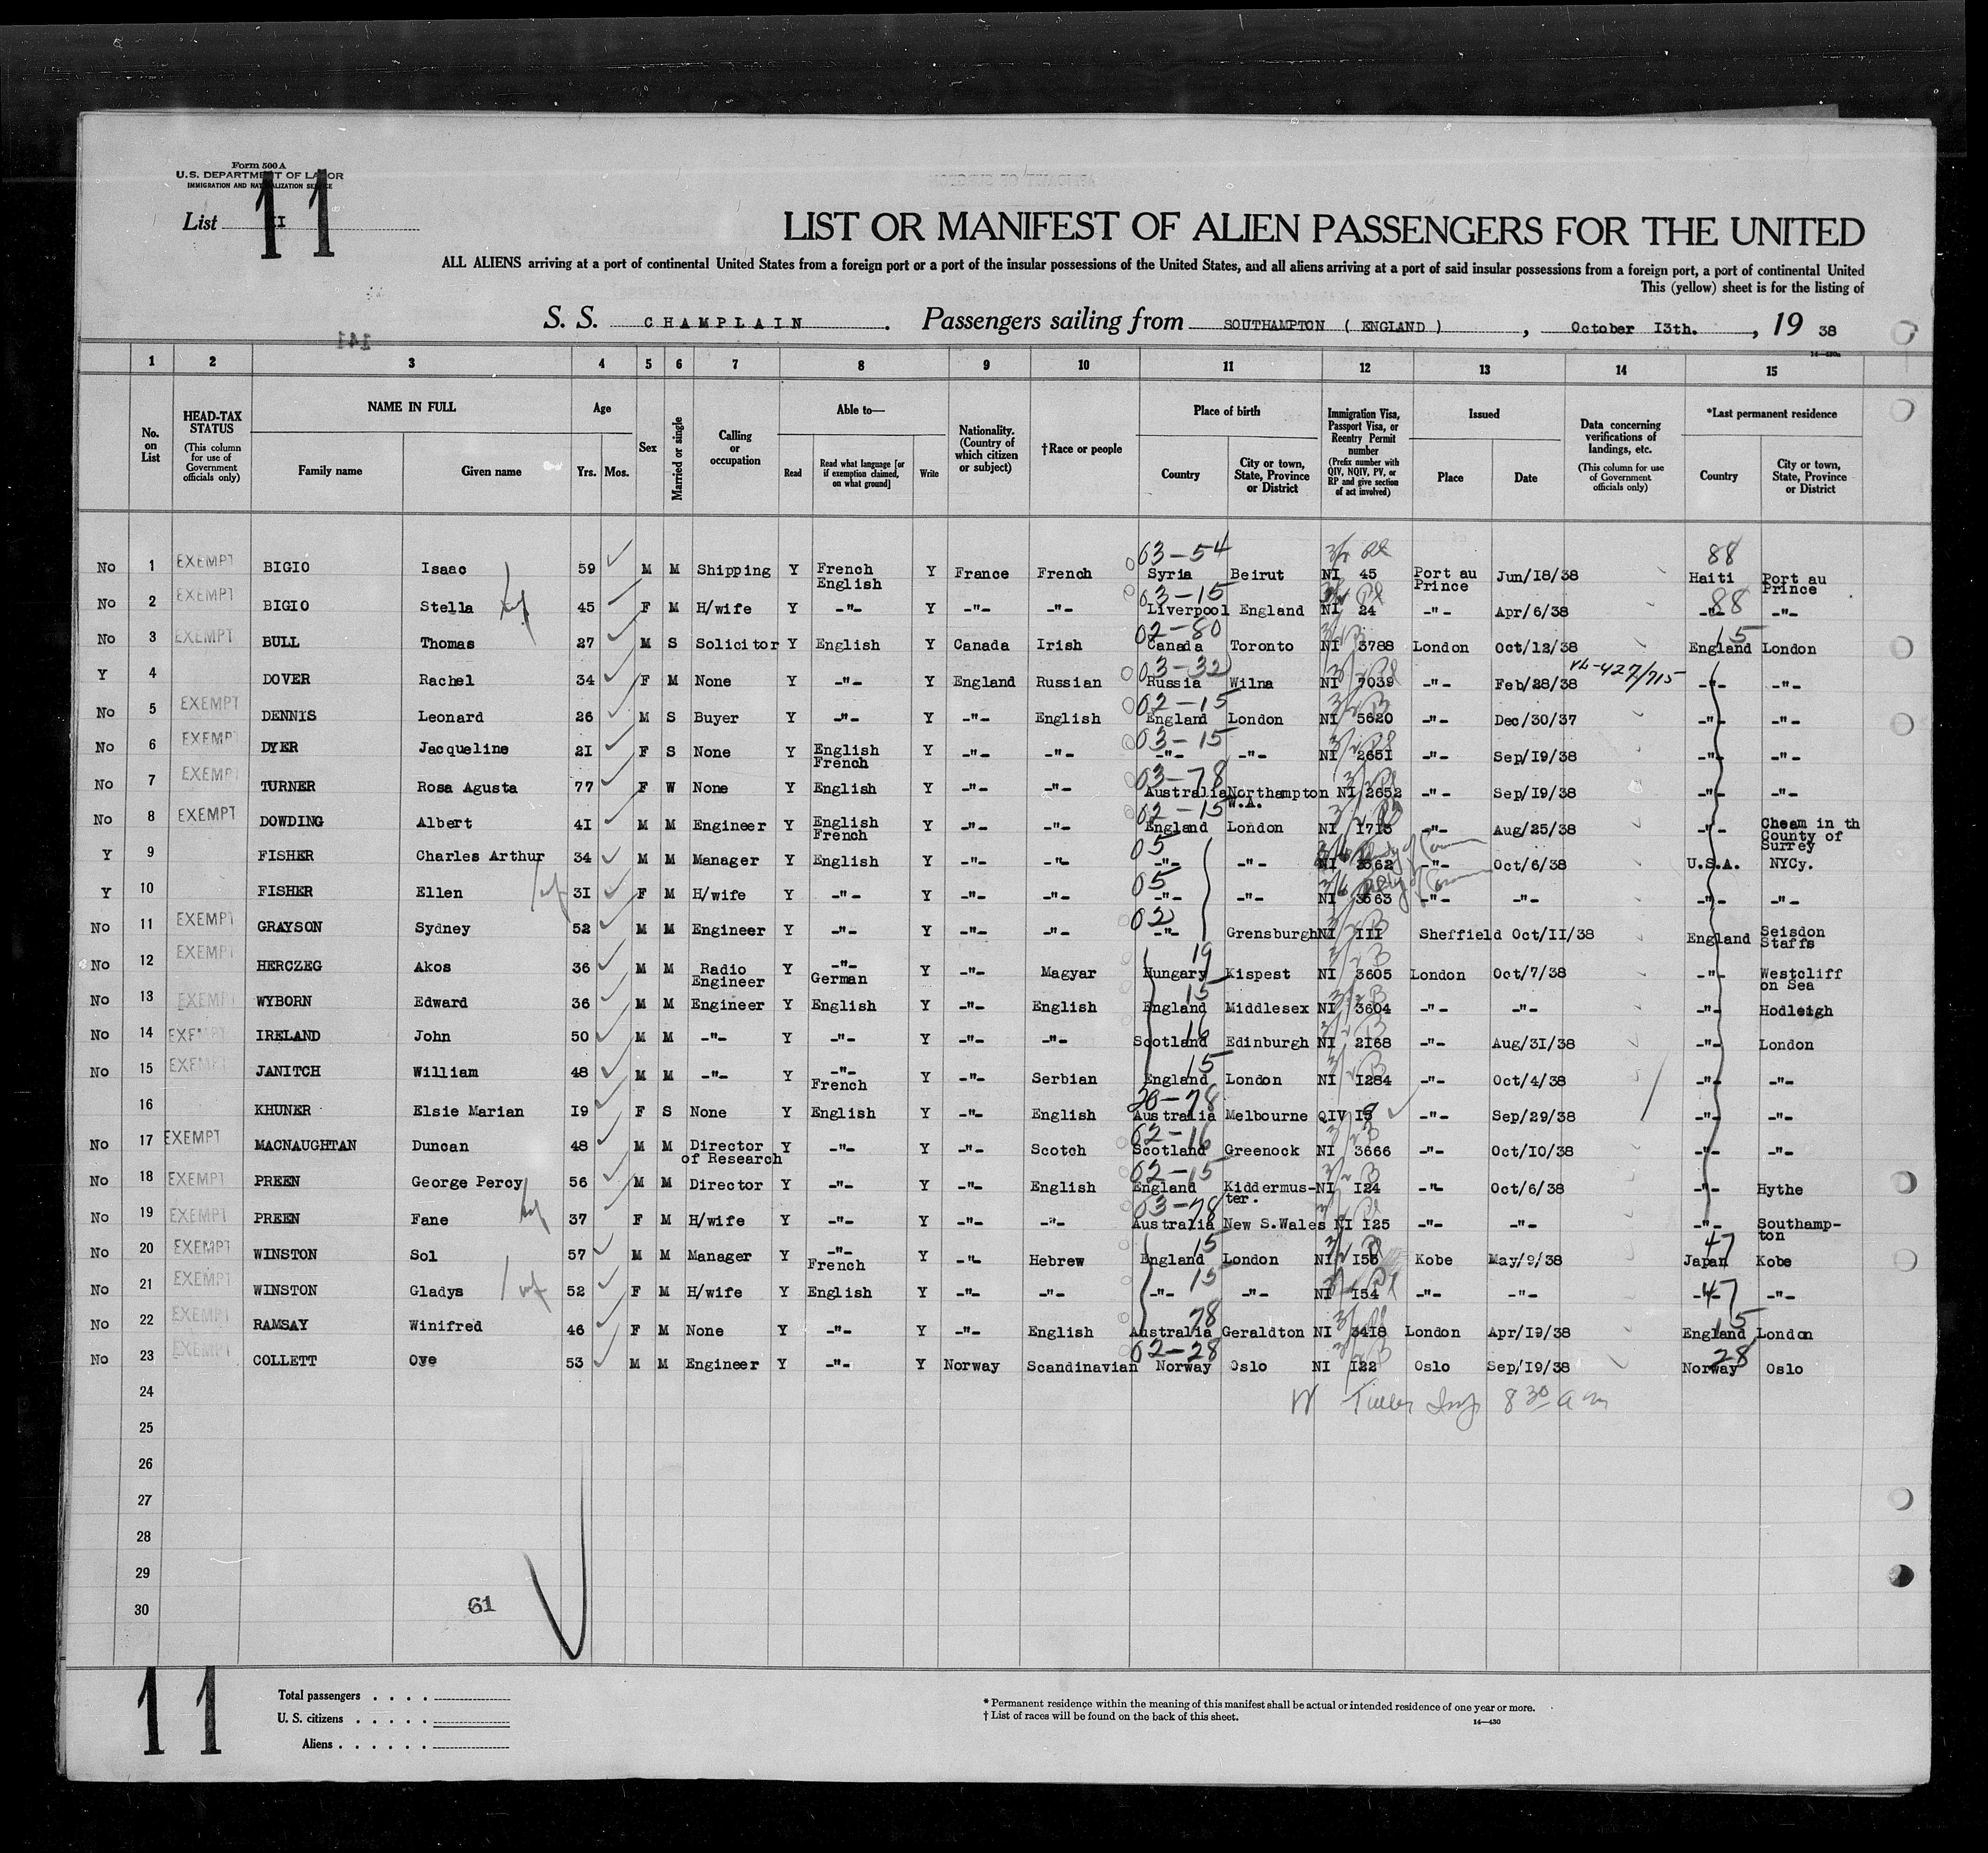 Form 500 A
U.S. DEPARTMENT OF LABOR
IMMIGRATION AND NATURALIZATION SERVICE
List II
11
LIST OR MANIFEST OF ALIEN PASSENGERS FOR THE UNITED
ALL ALIENS arriving at a port of continental United States from a foreign port or a port of the insular possessions of the United States, and all aliens arriving at a port of said insular possessions from a foreign port, a port of continental United
This (yellow) sheet is for the listing of
S. S. CHAMPLAIN . Passengers sailing from SOUTHAMPTON ( ENGLAND ) , October I3th. , 19 38
14—430a
141
1 2 3 4 5 6 7 8 9 10 11 12 13 14 15
No. on List
HEAD-TAX STATUS (This column for use of Government officials only)
NAME IN FULL Family name Given name
Age Yrs. Mos.
Sex
Married or single
Calling or occupation
Able to— Read Read what language [or if exemption claimed, on what ground] Write
Nationality. (Country of which citizen or subject)
†Race or people
Place of birth Country City or town, State, Province or District
Immigration Visa, Passport Visa, or Reentry Permit number (Prefix number with QIV, NQIV, PV, or RP and give section of act involved)
Issued Place Date
Data concerning verifications of landings, etc. (This column for use of Government officials only)
*Last permanent residence Country City or town, State, Province or District
03-54 3/2 Pl 88
No 1 EXEMPT BIGIO Isaac 59 M M Shipping Y French English Y France French Syria Beirut NI 45 Port au Prince Jun/I8/38 Haiti Port au Prince
03-15 88
No 2 EXEMPT BIGIO Stella wf 45 F M H/wife Y -"- Y -"- -"- Liverpool England NI 24 -"- Apr/6/38 -"- -"-
02-80 15
No 3 EXEMPT BULL Thomas 27 M S Solicitor Y English Y Canada Irish Canada Toronto NI 3788 London Oct/I2/38 England London
03-32
Y 4 DOVER Rachel 34 F M None Y -"- Y England Russian Russia Wilna NI 7039 -"- Feb/28/38 -427/715 -"- -"-
02-15
No 5 EXEMPT DENNIS Leonard 26 M S Buyer Y -"- Y -"- English England London NI 5620 -"- Dec/30/37 -"- -"-
03-15
No 6 EXEMPT DYER Jacqueline 2I F S None Y English French Y -"- -"- -"- -"- NI 265I -"- Sep/I9/38 -"- -"-
03-78
No 7 EXEMPT TURNER Rosa Agusta 77 F W None Y English Y -"- -"- Australia Northampton W.A. NI 2652 -"- Sep/I9/38 -"- -"-
02-15
No 8 EXEMPT DOWDING Albert 4I M M Engineer Y English French Y -"- -"- England London NI I7I3 -"- Aug/25/38 -"- Cheam in th County of Surrey
05
Y 9 FISHER Charles Arthur 34 M M Manager Y English Y -"- -"- -"- -"- NI 3562 -"- Oct/6/38 U.S.A. NYCy.
05
Y 10 FISHER Ellen wf 3I F M H/wife Y -"- Y -"- -"- -"- -"- NI 3563 -"- -"- -"- -"-
02
No 11 EXEMPT GRAYSON Sydney 52 M M Engineer Y -"- Y -"- -"- -"- Grensburgh NI III Sheffield Oct/II/38 England Seisdon Staffs
19
No 12 EXEMPT HERCZEG Akos 36 M M Radio Engineer Y -"- German Y -"- Magyar Hungary Kispest NI 3605 London Oct/7/38 -"- Westcliff on Sea
15
No 13 EXEMPT WYBORN Edward 36 M M Engineer Y English Y -"- English England Middlesex NI 3604 -"- -"- -"- Hodleigh
16
No 14 EXEMPT IRELAND John 50 M M -"- Y -"- Y -"- -"- Scotland Edinburgh NI 2I68 -"- Aug/3I/38 -"- London
15
No 15 EXEMPT JANITCH William 48 M M -"- Y -"- French Y -"- Serbian England London NI I284 -"- Oct/4/38 -"- -"-
20-78
16 KHUNER Elsie Marian I9 F S None Y English Y -"- English Australia Melbourne QIV I5 -"- Sep/29/38 -"- -"-
02-16
No 17 EXEMPT MACNAUGHTAN Duncan 48 M M Director of Research Y -"- Y -"- Scotch Scotland Greenock NI 3666 -"- Oct/I0/38 -"- -"-
02-15
No 18 EXEMPT PREEN George Percy 56 M M Director Y -"- Y -"- English England Kiddermus-ter. NI I24 -"- Oct/6/38 -"- Hythe
03-78
No 19 EXEMPT PREEN Fane wf 37 F M H/wife Y -"- Y -"- -"- Australia New S.Wales NI I25 -"- -"- -"- Southamp-ton
15 47
No 20 EXEMPT WINSTON Sol 57 M M Manager Y -"- French Y -"- Hebrew England London NI I53 Kobe May/9/38 Japan Kobe
15 47
No 21 EXEMPT WINSTON Gladys wf 52 F M H/wife Y English Y -"- -"- -"- -"- NI I54 -"- -"- -"- -"-
78 15
No 22 EXEMPT RAMSAY Winifred 46 F M None Y -"- Y -"- English Australia Geraldton NI 34I8 London Apr/I9/38 England London
02-28 28
No 23 EXEMPT COLLETT Oye 53 M M Engineer Y -"- Y Norway Scandinavian Norway Oslo NI I22 Oslo Sep/I9/38 Norway Oslo
24 8 30 am
25
26
27
28
29
30
61
11
Total passengers . . . .
U. S. citizens . . . . .
Aliens . . . . . .
* Permanent residence within the meaning of this manifest shall be actual or intended residence of one year or more.
† List of races will be found on the back of this sheet.
14—430